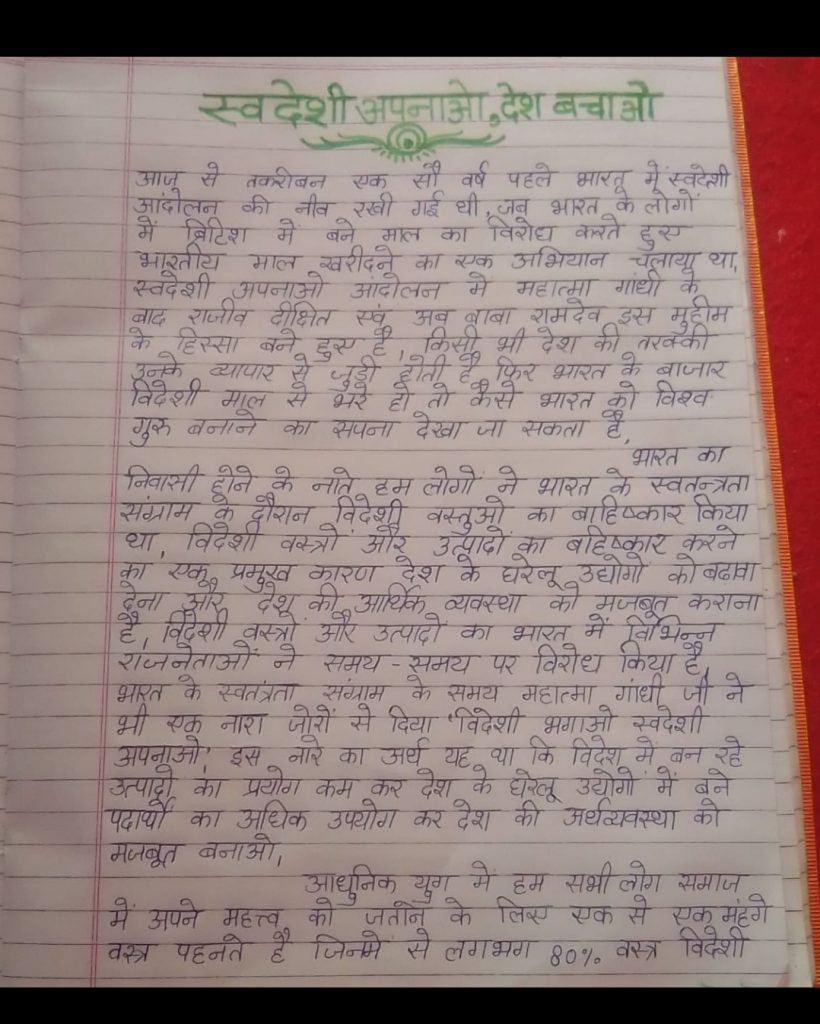 स्वदेशी अपनाओ, देश बचाओ
आज से तकरीबन एक सौ वर्ष पहले भारत में स्वदेशी
आंदोलन की नीव रखी गई थी, जब भारत के लोगों
में ब्रिटिश में बने माल का विरोध करते हुए
भारतीय माल खरीदने का एक अभियान चलाया था,
स्वदेशी अपनाओ आंदोलन में महात्मा गांधी के
बाद राजीव दीक्षित एवं अब बाबा रामदेव इस मुहीम
के हिस्सा बने हुए है, किसी भी देश की तरक्की
उनके व्यापार से जुड़ी होती है फिर भारत के बाजार
विदेशी माल से भरे हो तो कैसे भारत को विश्व
गुरु बनाने का सपना देखा जा सकता है,
भारत का
निवासी होने के नाते हम लोगों ने भारत के स्वतन्त्रता
संग्राम के दौरान विदेशी वस्तुओ का बाहिष्कार किया
था, विदेशी वस्त्रों और उत्पादों का बहिष्कार करने
का एक प्रमुख कारण देश के घरेलू उद्योगो को बढ़ावा
देना और देश की आर्थिक व्यवस्था को मजबूत कराना
है, विदेशी वस्त्रो और उत्पादो का भारत में विभिन्न
राजनेताओं ने समय-समय पर विरोध किया है,
भारत के स्वतंत्रता संग्राम के समय महात्मा गांधी जी ने
भी एक नारा जोरों से दिया 'विदेशी भगाओ स्वदेशी
अपनाओ' इस नारे का अर्थ यह था कि विदेश में बन रहे
उत्पादो का प्रयोग कम कर देश के घरेलू उद्योगो में बने
पदार्थो का अधिक उपयोग कर देश की अर्थव्यवस्था को
मजबूत बनाओ,
आधुनिक युग में हम सभी लोग समाज
में अपने महत्त्व को जताने के लिए एक से एक महंगे
वस्त्र पहनते है जिनमे से लगभग 80% वस्त्र विदेशी